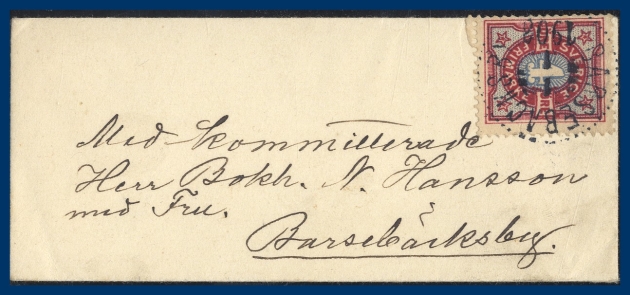 Med kommitterade
Herr Bokh. N. Hansson
med Fru.
Barsebäcksby.
SVERIGE
FRIMÄRKE